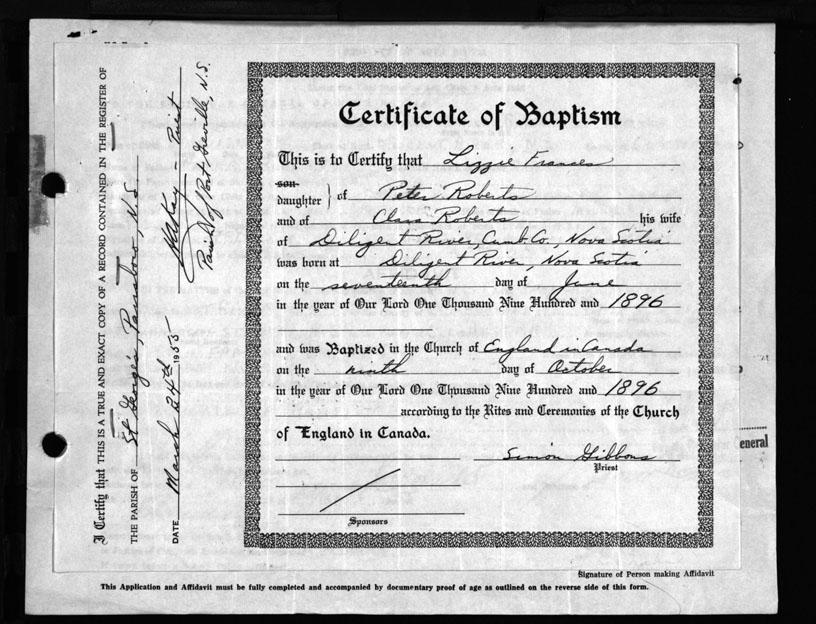 Certificate of Baptism
This is to Certify that Lizzie Frances
son
daughter } of Peter Roberts
and of Clara Roberts his wife
of Diligent River, Cumb. Co., Nova Scotia
was born at Diligent River, Nova Scotia
on the seventeenth day of June
in the year of Our Lord One Thousand Nine Hundred and 1896
and was Baptized in the Church of England in Canada
on the ninth day of October
in the year of Our Lord One Thousand Nine Hundred and 1896
according to the Rites and Ceremonies of the Church
of England in Canada.
Simon Gibbons
Priest
Sponsors
I Certify that THIS IS A TRUE AND EXACT COPY OF A RECORD CONTAINED IN THE REGISTER OF
THE PARISH OF St Georges, Parrsboro, N.S.
DATE March 24th 1955
Priest
Parish of Port Greville N.S.
eneral
Signature of Person making Affidavit
This Application and Affidavit must be fully completed and accompanied by documentary proof of age as outlined on the reverse side of this form.